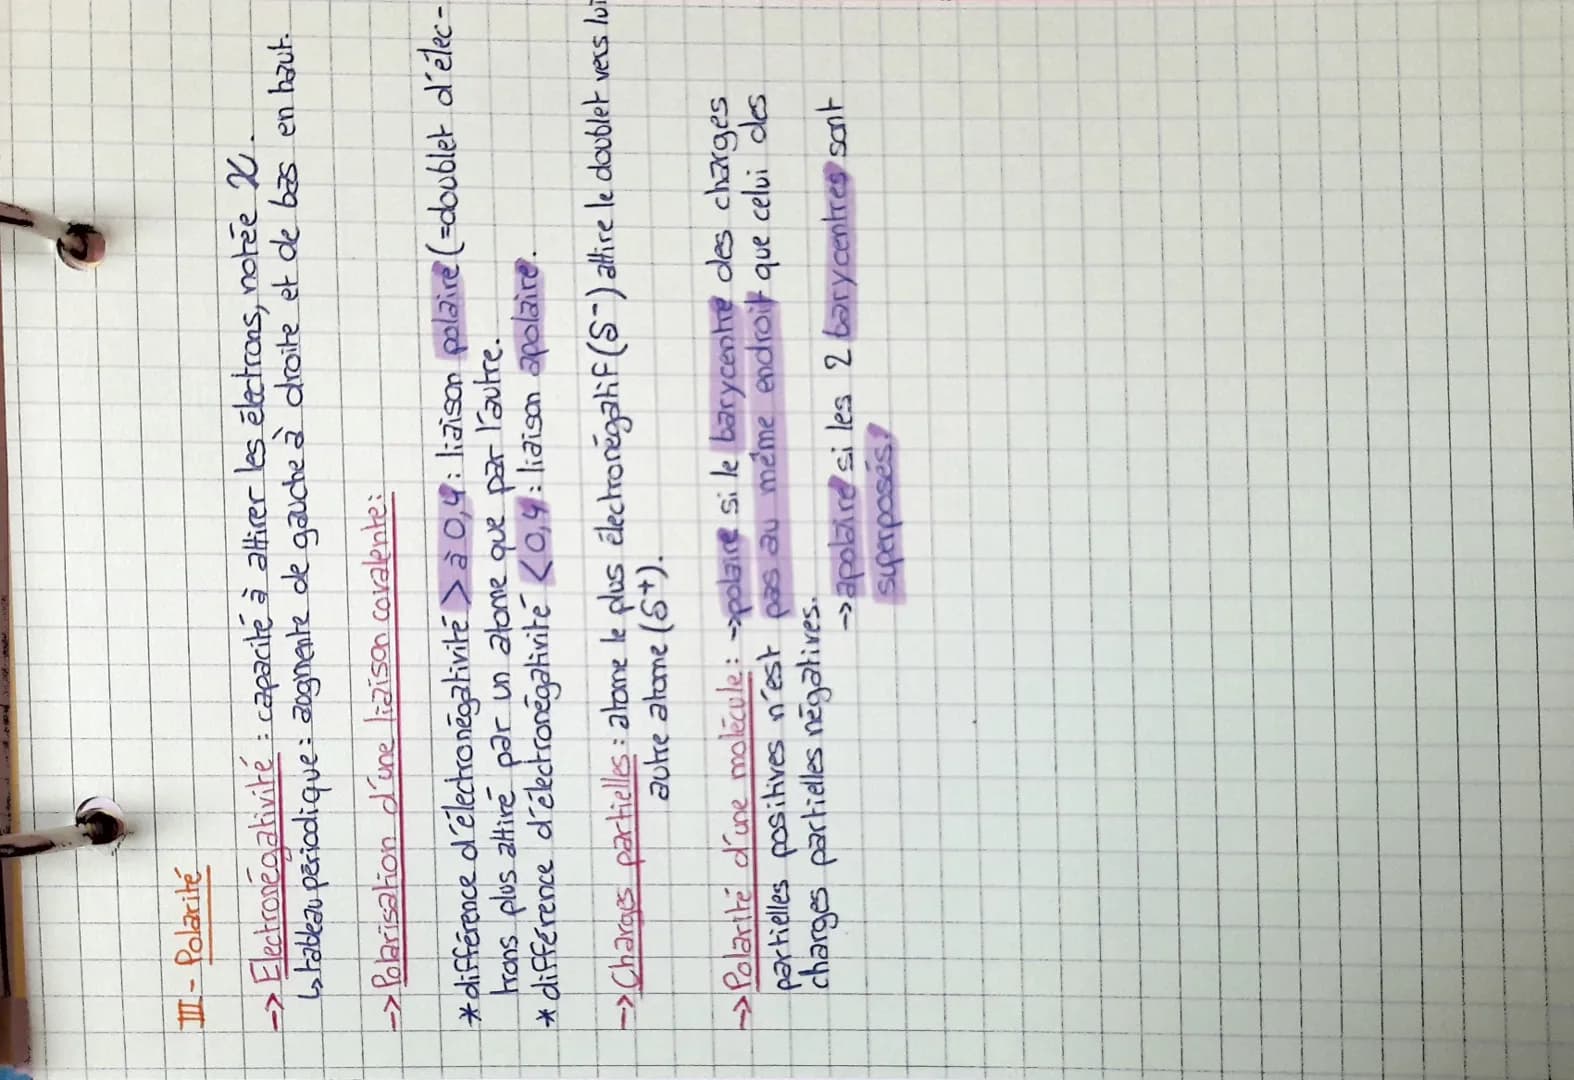 III - Polarité
-> Electronégativité : capacité à attirer les électrons, notée χ.
↳ tableau périodique : augmente de gauche à droite et de bas en haut.
-> Polarisation d'une liaison covalente :
* différence d'électronégativité > à 0,4 : liaison polaire (=doublet d'élec-
trons plus attiré par un atome que par l'autre.
* différence d'électronégativité < 0,4 : liaison apolaire.
-> Charges partielles : atome le plus électronégatif (δ-) attire le doublet vers lui
autre atome (δ+).
-> Polarité d'une molécule : -> polaire si le barycentre des charges
partielles positives n'est pas au même endroit que celui des
charges partielles négatives.
-> apolaire si les 2 barycentres sont
superposés.